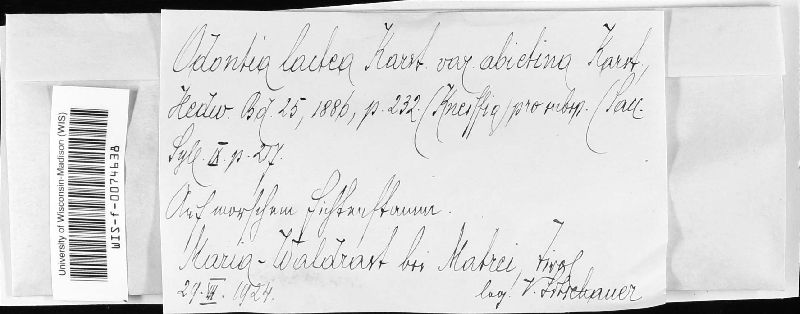 Odontia lactea Karst. var. abietina Karst.,
Hedw. Bd. 25, 1886, p. 232. (Kneiffia) pro subsp. (Sacc.
Syll. IX p. 217.
Auf morschem Fichtenstamm.
Maria-Waldrast bei Matrei, Tirol
27. 1924.
leg. V. Litschauer
University of Wisconsin-Madison (WIS)
WIS-f-0074638